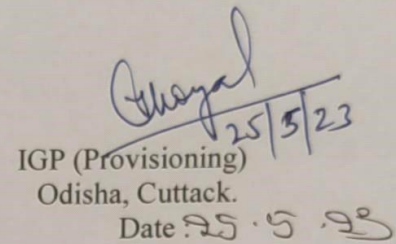 25/5/23
IGP (Provisioning)
Odisha, Cuttack.
Date : 25 . 5 . 23